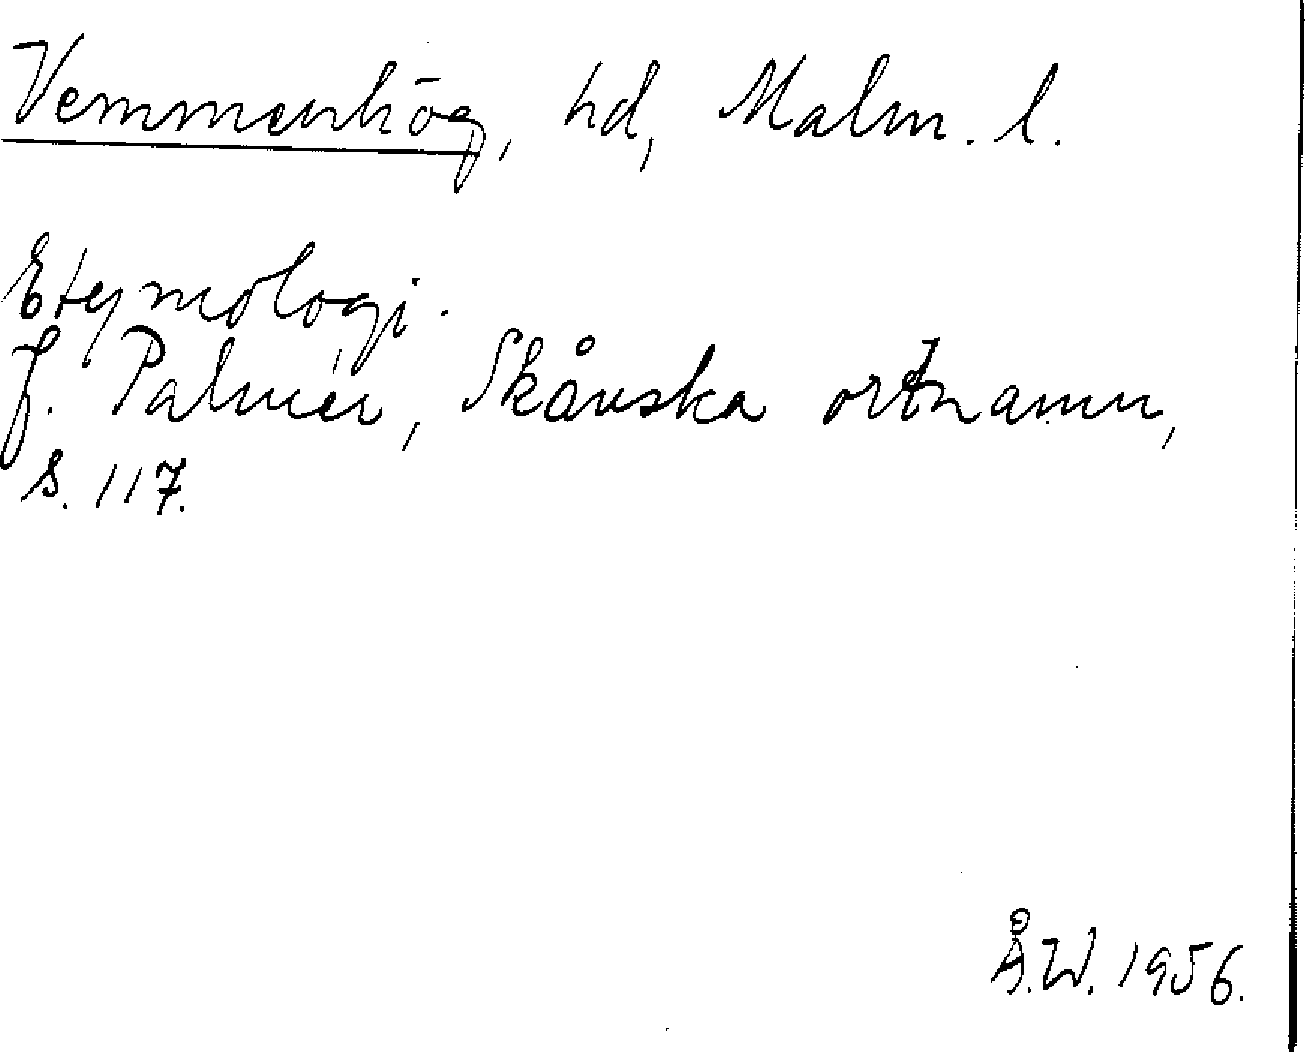 Vemmenhög, hd, Malm. l.
Etymologi.
J. Palmér, Skånska ortnamn,
s. 117.
Å.W. 1956.